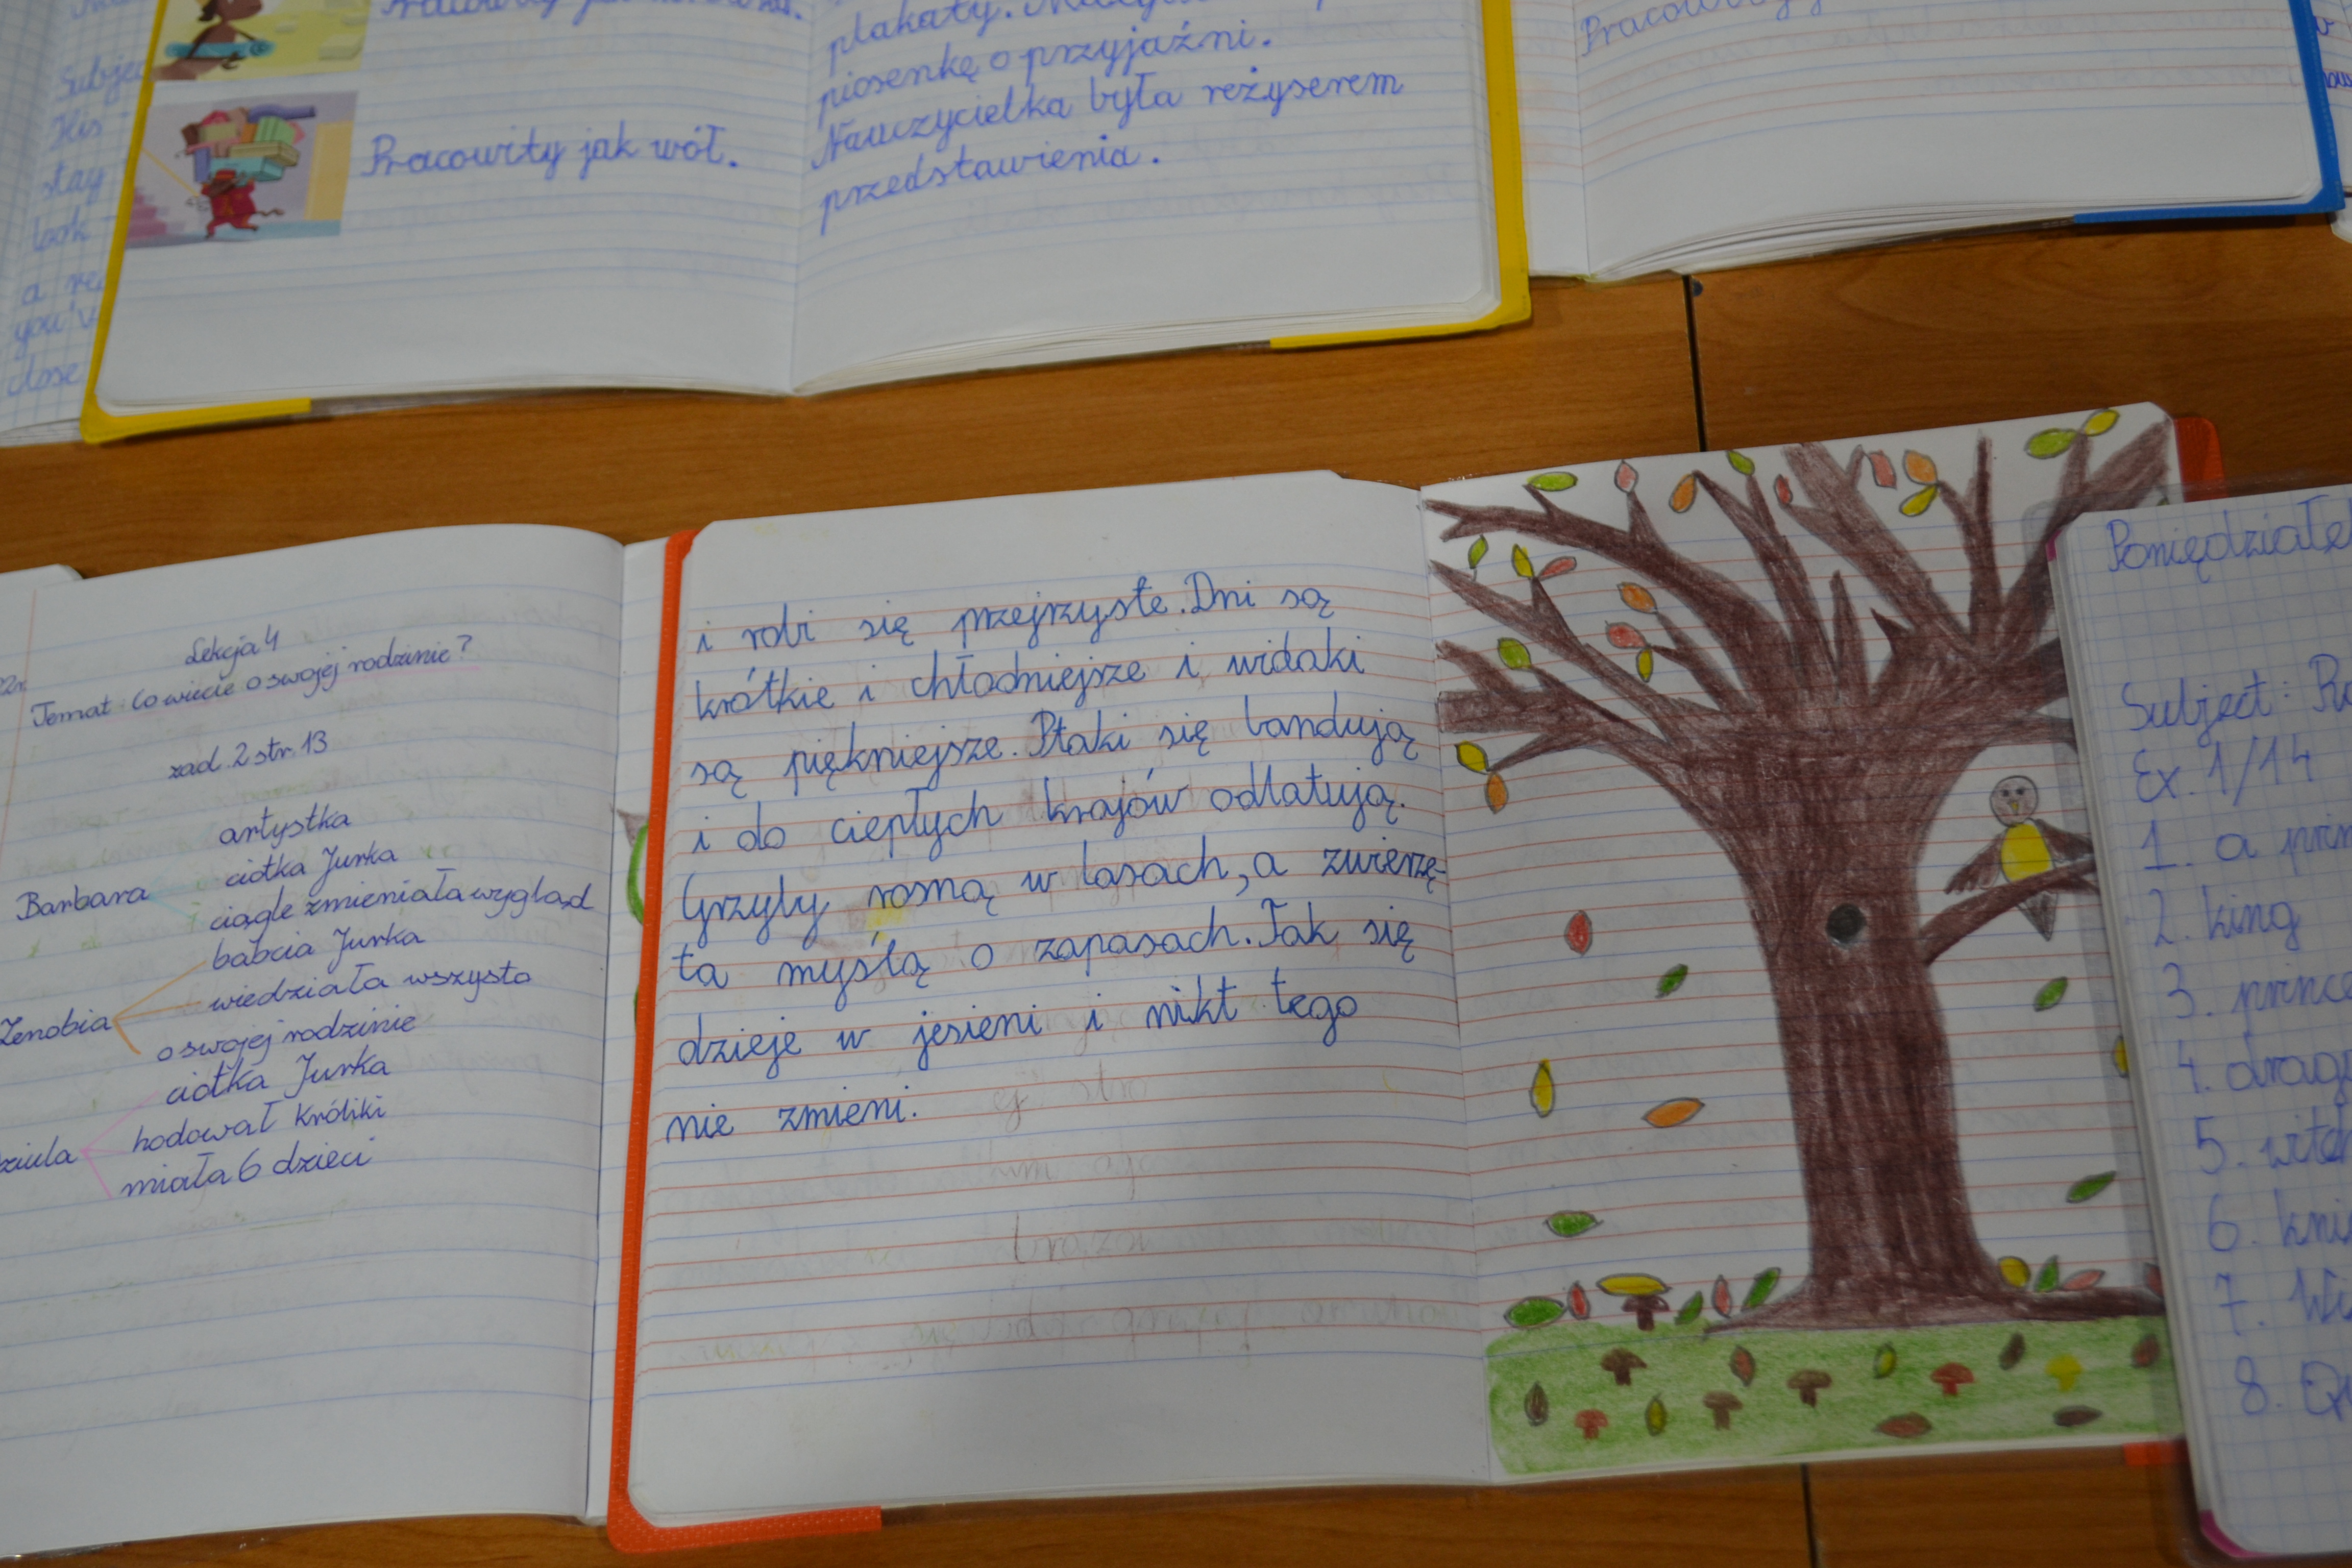 Subjec
His
stay
look
a re
you'v
close
Pracowity jak wół.
plakaty.
piosenkę o przyjaźni.
Nauczycielka była reżyserem
przedstawienia.
Lekcja 4
Temat: Co wiecie o swojej rodzinie?
zad. 2 str. 13
artystka
ciotka Jurka
Barbara
ciągle zmieniała wygląd
babcia Jurka
wiedziała wszysto
Zenobia
o swojej rodzinie
ciotka Jurka
hodował króliki
miała 6 dzieci
i robi się przejrzyste. Dni są
krótkie i chłodniejsze i widoki
są piękniejsze. Ptaki się bandują
i do ciepłych krajów odlatują.
Grzyby rosną w lasach, a zwierzę-
ta myślą o zapasach. Tak się
dzieje w jesieni i nikt tego
nie zmieni.
Poniedziałe
Subject:
Ex. 1/14
1. a prin
2. king
3. prince
4. drag
5. wit
6. kni
7.
8.